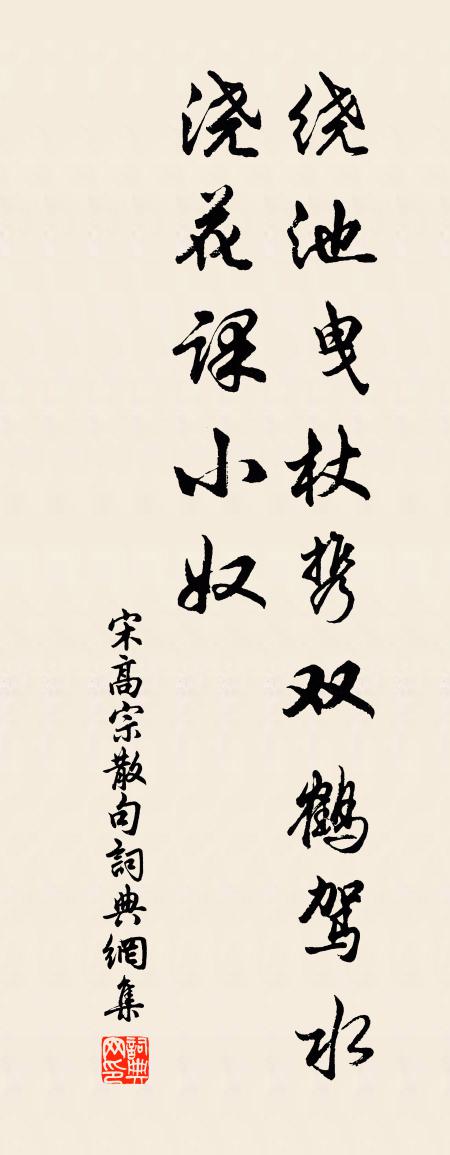 绕池曳杖携双鹤驾水
浇花课小奴
宋高宗散句詞典網集
詞典网印